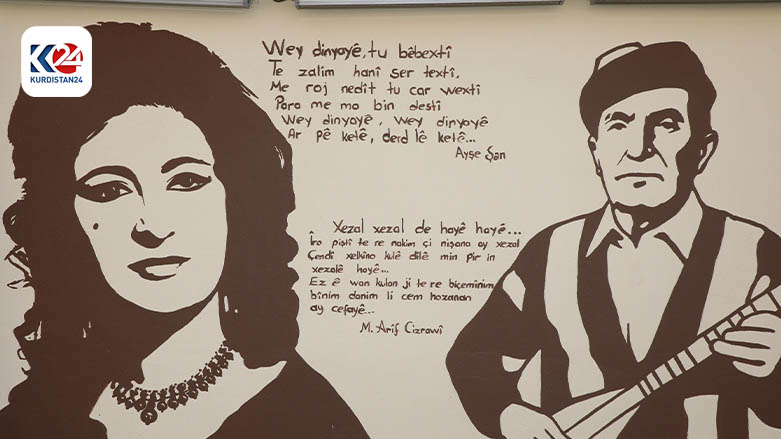 K24
KURDISTAN24
Wey dinyayê, tu bêbextî
Te zalim hanî ser textî,
Me roj nedît tu car wextî
Para me ma bin destî
Wey dinyayê, wey dinyayê
Ar pê ketê, derd lê ketê...
Ayşe Şan
Xezal xezal de hayê hayê...
Îro piştî te re nakim çi nîşana ay xezal
Çendî xelkîno kulê dilê min pir in
xezalê hayê...
Ez ê wan kulan ji te re biçêminim
bînim danim li cem hozanan
ay cefayê...
M. Arif Cizrawî